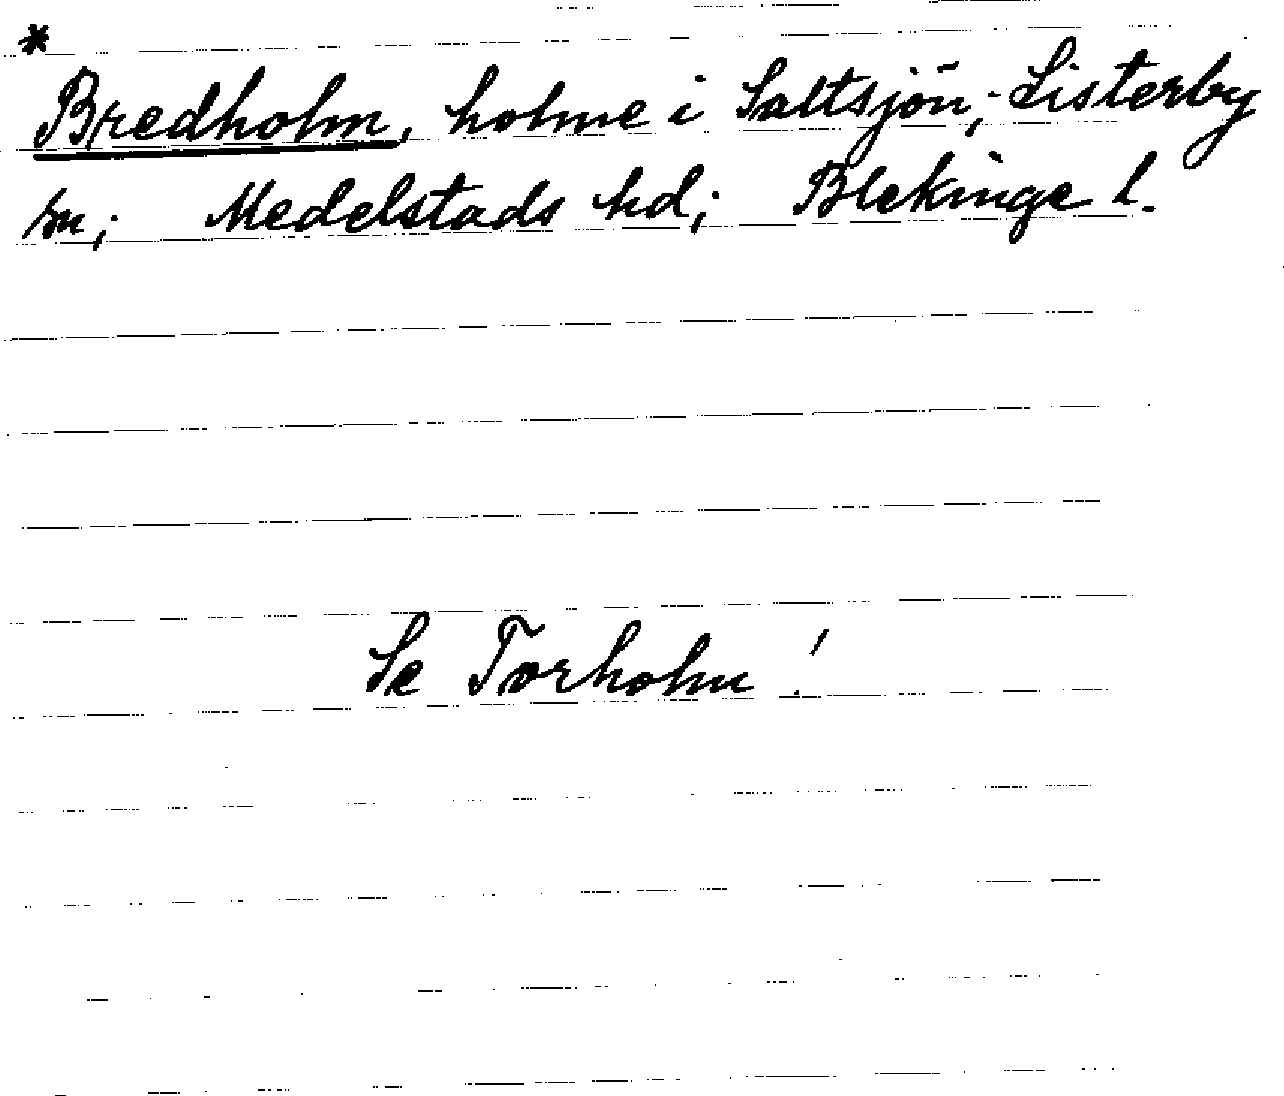 *
Bredholm, holme i Saltsjön; Listerby
sn; Medelstads hd; Blekinge l.
Se Torholm!